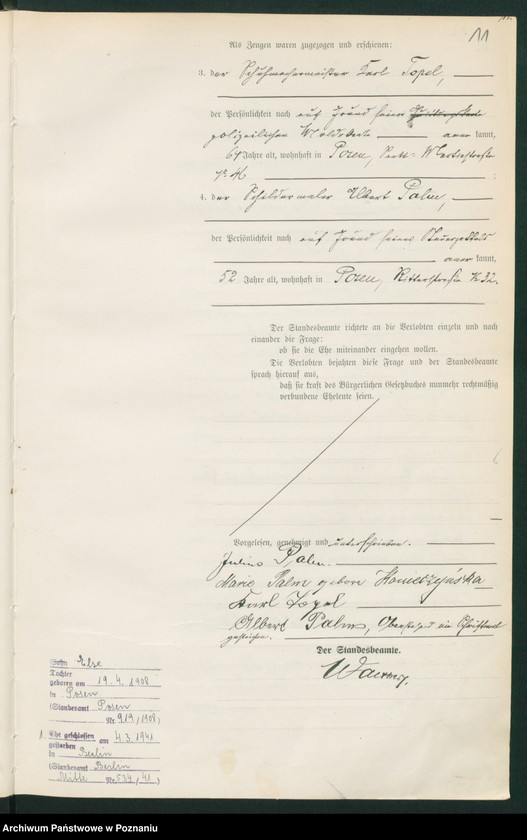 11
Als Zeugen waren zugezogen und erschienen:
3. der Schuhmachermeister Karl Topel,
der Persönlichkeit nach auf Grund seiner
polizeilichen Meldekarte anerkannt,
64 Jahre alt, wohnhaft in Posen, Sankt-Martinstraße
Nr. 46
4. der Schildermaler Albert Palm,
der Persönlichkeit nach auf Grund seines Steuerzettels
anerkannt,
52 Jahre alt, wohnhaft in Posen, Ritterstraße Nr. 32.
Der Standesbeamte richtete an die Verlobten einzeln und nach
einander die Frage:
ob sie die Ehe miteinander eingehen wollen.
Die Verlobten bejahten diese Frage und der Standesbeamte
sprach hierauf aus,
daß sie kraft des Bürgerlichen Gesetzbuches nunmehr rechtmäßig
verbundene Eheleute seien.
Vorgelesen, genehmigt und unterschrieben.
Julius Palm.
Marie Palm geborene Konieczyńska
Karl Topel
Albert Palm, Oberstehend ein Schriftwort
gestrichen.
Der Standesbeamte.
Sohn Else
Tochter
geboren am 19.4.1908
in Posen
(Standesamt Posen
Nr. 919/1908)
1. Ehe geschlossen am 4.3.1941
gestorben
in Berlin
(Standesamt Berlin
Mitte Nr. 534/41)
Archiwum Państwowe w Poznaniu